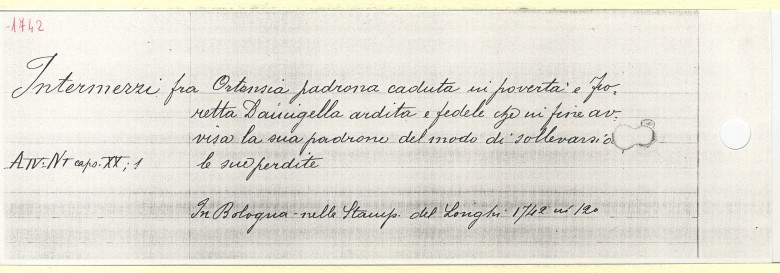 -1742
Intermezzi fra Ortensia padrona caduta in povertà e Fio-
retta Damigella ardita e fedele che in fine av-
visa la sua padrone del modo di sollevarsi
A IV. N1 capo. XX; 1 le sue perdite
In Bologna - nelle Stamp. del Longhi. 1742 in 12°